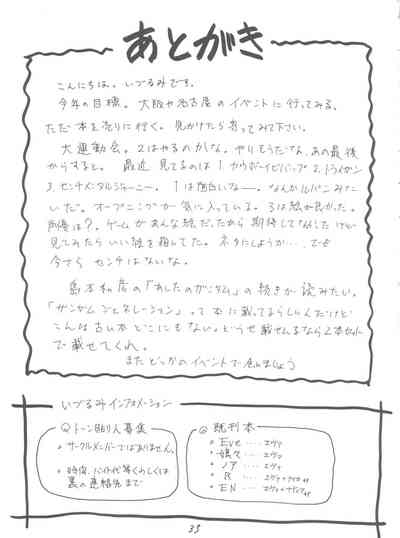 あとがき
こんにちは。いづるみです。
今年の目標。大阪や名古屋のイベントに行ってみる。
ただ本を売りに行く。見かけたら寄ってみて下さい。
大運動会。2はやるのかな。やりそうだな、あの最後
からすると。最近見てるのは1カウボーイビバップ2.トライガン
3.センチメンタルジャーニー。1は面白いなー。なんかルパンみた
いだ。オープニングが気に入っている。3は絵が良かった。
声優は?。ゲームがあんな絵だったから期待してなかったけど
見てみたらいい絵を描いてた。ネタにしようか…、でも
今さらセンチはないな。
島本和彦の「あしたのガンダム」の続きが読みたい。
「ガンダムジェネレーション」って本に載ってるらしいんだけど
こんな古い本どこにもない。どうせ載せんるなら
で載せてくれ。
またどっかのイベントで会いましょう
いづるみインフォメーション
◎トーン貼り人募集
・サークルメンバーではありません。
・時給、バイト代等くわしくは
裏の連絡先まで
◎既刊本
・Eve ‥‥ エヴァ
・嬉々 ‥‥ エヴァ
・ノア ‥‥ エヴァ
・R ‥‥ エヴァ+
・EN ‥‥ エヴァ+ナデシコ
35